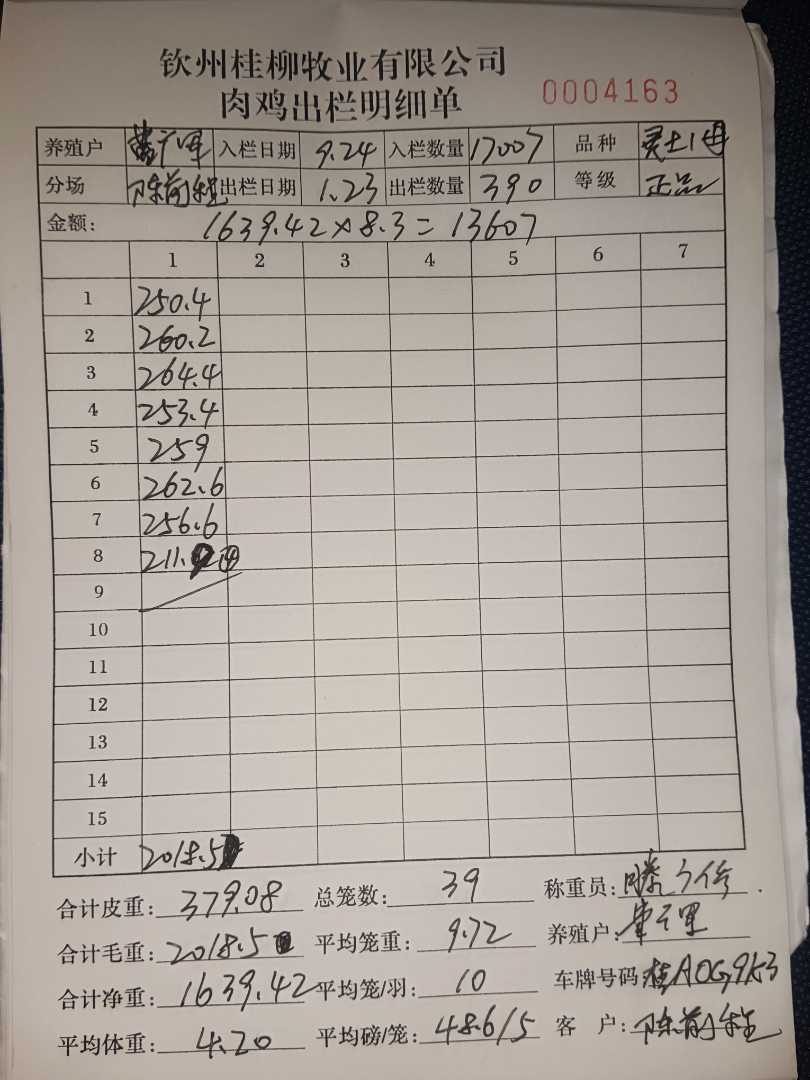 钦州桂柳牧业有限公司
肉鸡出栏明细单 0004163
养殖户 入栏日期 9.24 入栏数量 17007 品种
分场 陈前程 出栏日期 1.23 出栏数量 390 等级 正品
金额: 1639.42×8.3=13607
1 2 3 4 5 6 7
1 250.4
2 260.2
3 264.4
4 253.4
5 259
6 262.6
7 256.6
8 211. ④
9
10
11
12
13
14
15
小计 2018.5
合计皮重: 379.08 总笼数: 39 称重员:
合计毛重: 2018.5 平均笼重: 9.72 养殖户:
合计净重: 1639.42 平均笼/羽: 10 车牌号码 桂A0G9K3
平均体重: 4.20 平均磅/笼: 48.6/5 客户: 陈前程